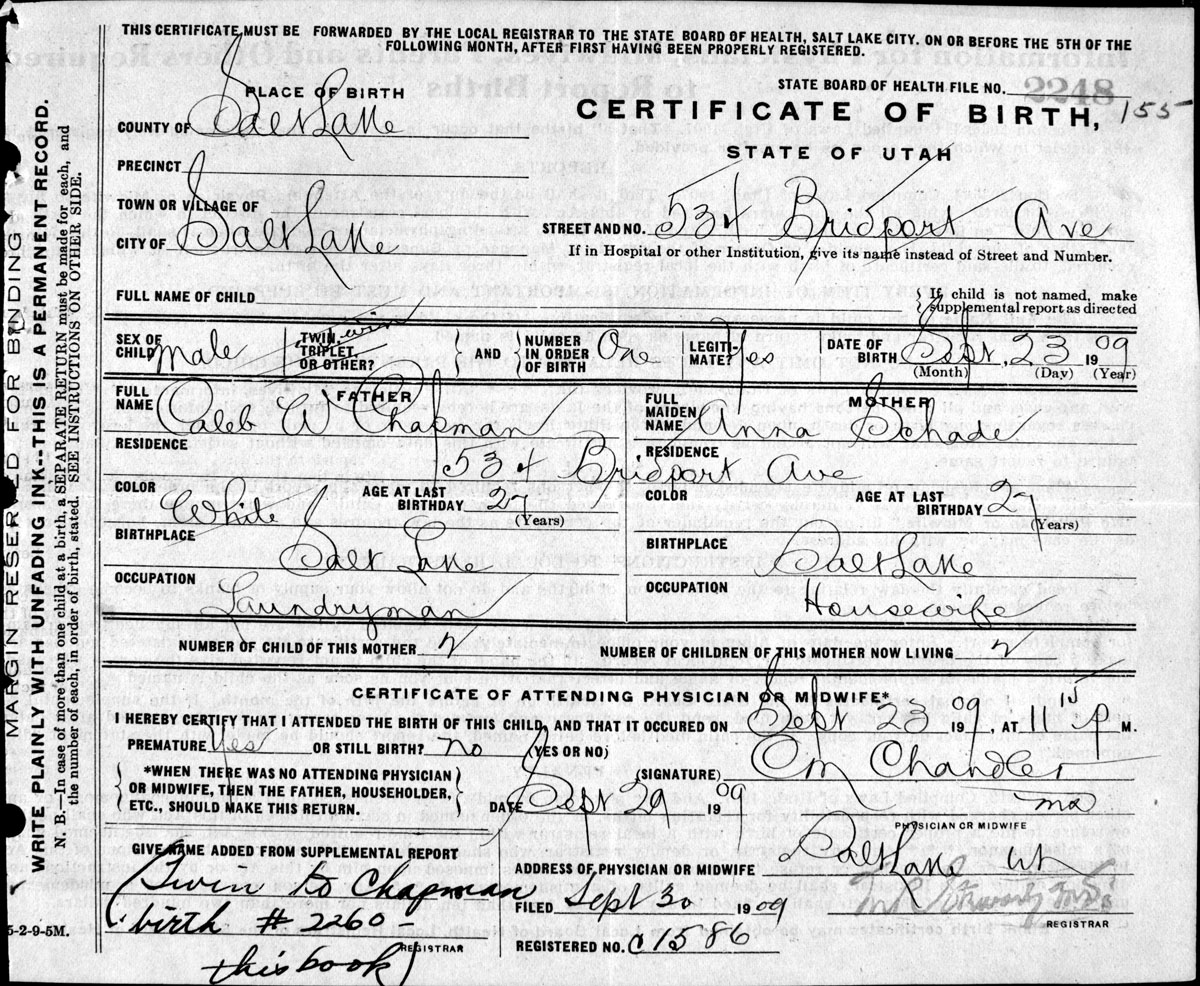 THIS CERTIFICATE MUST BE FORWARDED BY THE LOCAL REGISTRAR TO THE STATE BOARD OF HEALTH, SALT LAKE CITY. ON OR BEFORE THE 5TH OF THE
FOLLOWING MONTH, AFTER FIRST HAVING BEEN PROPERLY REGISTERED.
STATE BOARD OF HEALTH FILE NO. 2248
PLACE OF BIRTH
CERTIFICATE OF BIRTH, 155
STATE OF UTAH
COUNTY OF Salt Lake
PRECINCT
TOWN OR VILLAGE OF
CITY OF Salt Lake
STREET AND NO. 534 Bridport Ave
If in Hospital or other Institution, give its name instead of Street and Number.
FULL NAME OF CHILD
{ If child is not named, make
supplemental report as directed
SEX OF CHILD male
TWIN, TRIPLET, OR OTHER? twin
} AND { NUMBER IN ORDER OF BIRTH One
LEGITI-MATE? Yes
DATE OF BIRTH Sept, 23 1909
(Month) (Day) (Year)
FATHER
FULL NAME Caleb C Chapman
MOTHER
FULL MAIDEN NAME Anna Schade
RESIDENCE 534 Bridport Ave
RESIDENCE
COLOR White
AGE AT LAST BIRTHDAY 27 (Years)
COLOR
AGE AT LAST BIRTHDAY 27 (Years)
BIRTHPLACE Salt Lake
BIRTHPLACE Salt Lake
OCCUPATION Laundryman
OCCUPATION Housewife
NUMBER OF CHILD OF THIS MOTHER 2
NUMBER OF CHILDREN OF THIS MOTHER NOW LIVING 2
CERTIFICATE OF ATTENDING PHYSICIAN OR MIDWIFE*
I HEREBY CERTIFY THAT I ATTENDED THE BIRTH OF THIS CHILD, AND THAT IT OCCURED ON Sept 23 1909, AT 1 15 P M.
PREMATURE Yes OR STILL BIRTH? no (YES OR NO)
(SIGNATURE) Chandler
md
PHYSICIAN OR MIDWIFE
{ *WHEN THERE WAS NO ATTENDING PHYSICIAN
OR MIDWIFE, THEN THE FATHER, HOUSEHOLDER,
ETC., SHOULD MAKE THIS RETURN. }
DATE Sept 29 1909
GIVE NAME ADDED FROM SUPPLEMENTAL REPORT
(Twin to Chapman
birth # 2260
this book)
REGISTRAR
ADDRESS OF PHYSICIAN OR MIDWIFE Salt Lake Ut
FILED Sept 30 1909
REGISTRAR
REGISTERED NO. C1586
5-2-9-5M.
MARGIN RESERVED FOR BINDING
WRITE PLAINLY WITH UNFADING INK--THIS IS A PERMANENT RECORD.
N. B.—In case of more than one child at a birth, a SEPARATE RETURN must be made for each, and
the number of each, in order of birth, stated. SEE INSTRUCTIONS ON OTHER SIDE.